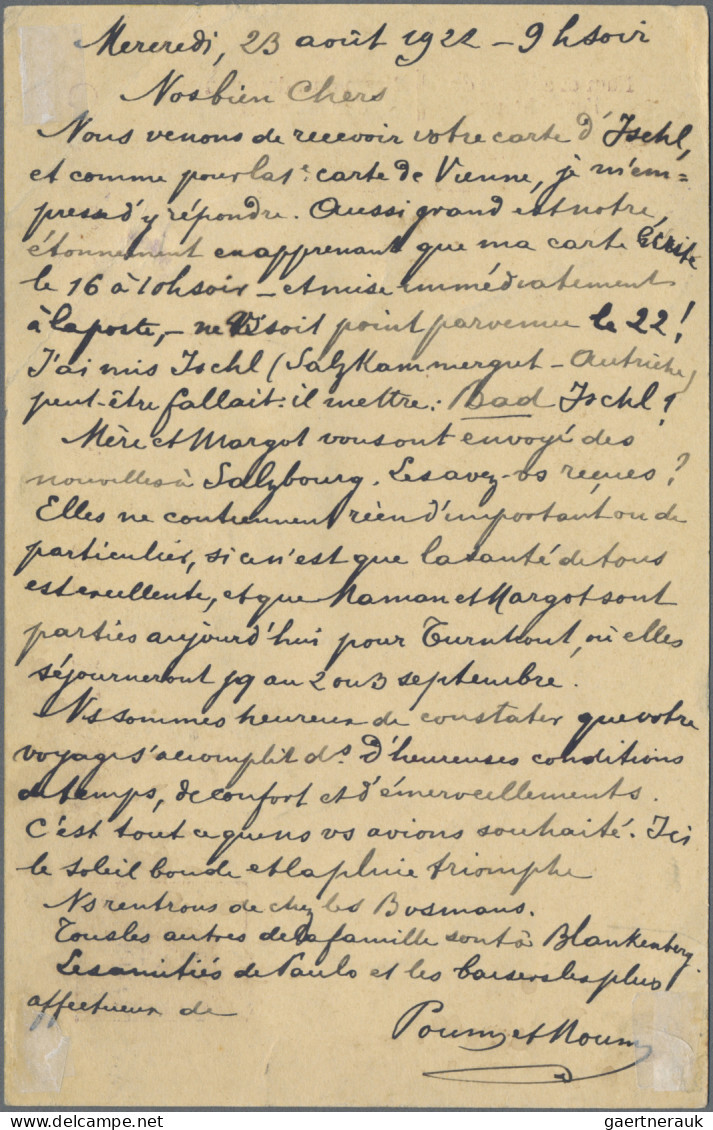 Mercredi, 23 août 1922 - 9 h soir
Nos bien Chers
Nous venons de recevoir votre carte d'Ischl,
et comme pour la 1e: carte de Vienne, je m'em=
presse d'y répondre. Aussi grand est notre
étonnement en apprenant que ma carte écrite
le 16 à 10h soir - et mise immédiatement
à la poste, - ne soit point parvenue le 22!
J'ai mis Ischl (Salzkammergut - Autriche)
peut-être fallait-il mettre: Bad Ischl?
Mère et Margot vous ont envoyé des
nouvelles à Salzbourg. Les avez-vs reçues?
Elles ne contiennent rien d'important ou de
particulier, si ce n'est que la santé de tous
est excellente, et que Maman et Margot sont
parties aujourd'hui pour Turnhout, où elles
séjourneront jq au 2 ou 3 septembre.
Ns sommes heureux de constater que votre
voyage s'accomplit ds d'heureuses conditions
de temps, de confort et d'émerveillements.
C'est tout ce que ns vs avions souhaité. Ici
le soleil boude et la pluie triomphe
Ns rentrons de chez les Bosmans.
Tous les autres de la famille sont à Blankenberg.
Les amitiés de Paulo et les baisers les plus
affectueux de
Poum et Moum
gaertnerauk